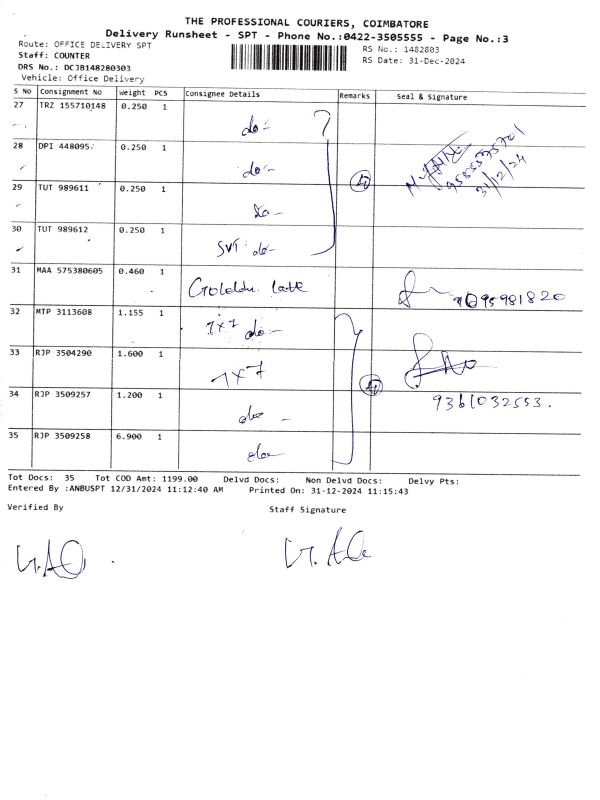 THE PROFESSIONAL COURIERS, COIMBATORE
Delivery Runsheet - SPT - Phone No.:0422-3505555 - Page No.:3
Route: OFFICE DELIVERY SPT
RS No.: 1482803
Staff: COUNTER
RS Date: 31-Dec-2024
DRS No.: DCJB148280303
Vehicle: Office Delivery
S No Consignment No Weight PCS Consignee Details Remarks Seal & Signature
27 TRZ 155710148 0.250 1 do-
28 DPI 448095 0.250 1 do- 4
9585575701
31/12/24
29 TUT 989611 0.250 1 do-
30 TUT 989612 0.250 1 SVT do-
31 MAA 575380605 0.460 1
32 MTP 3113608 1.155 1 7x7 do-
33 RJP 3504290 1.600 1 7x7
34 RJP 3509257 1.200 1 do - 9361032553.
35 RJP 3509258 6.900 1 do-
Tot Docs: 35 Tot COD Amt: 1199.00 Delvd Docs: Non Delvd Docs: Delvy Pts:
Entered By :ANBUSPT 12/31/2024 11:12:40 AM Printed On: 31-12-2024 11:15:43
Verified By Staff Signature